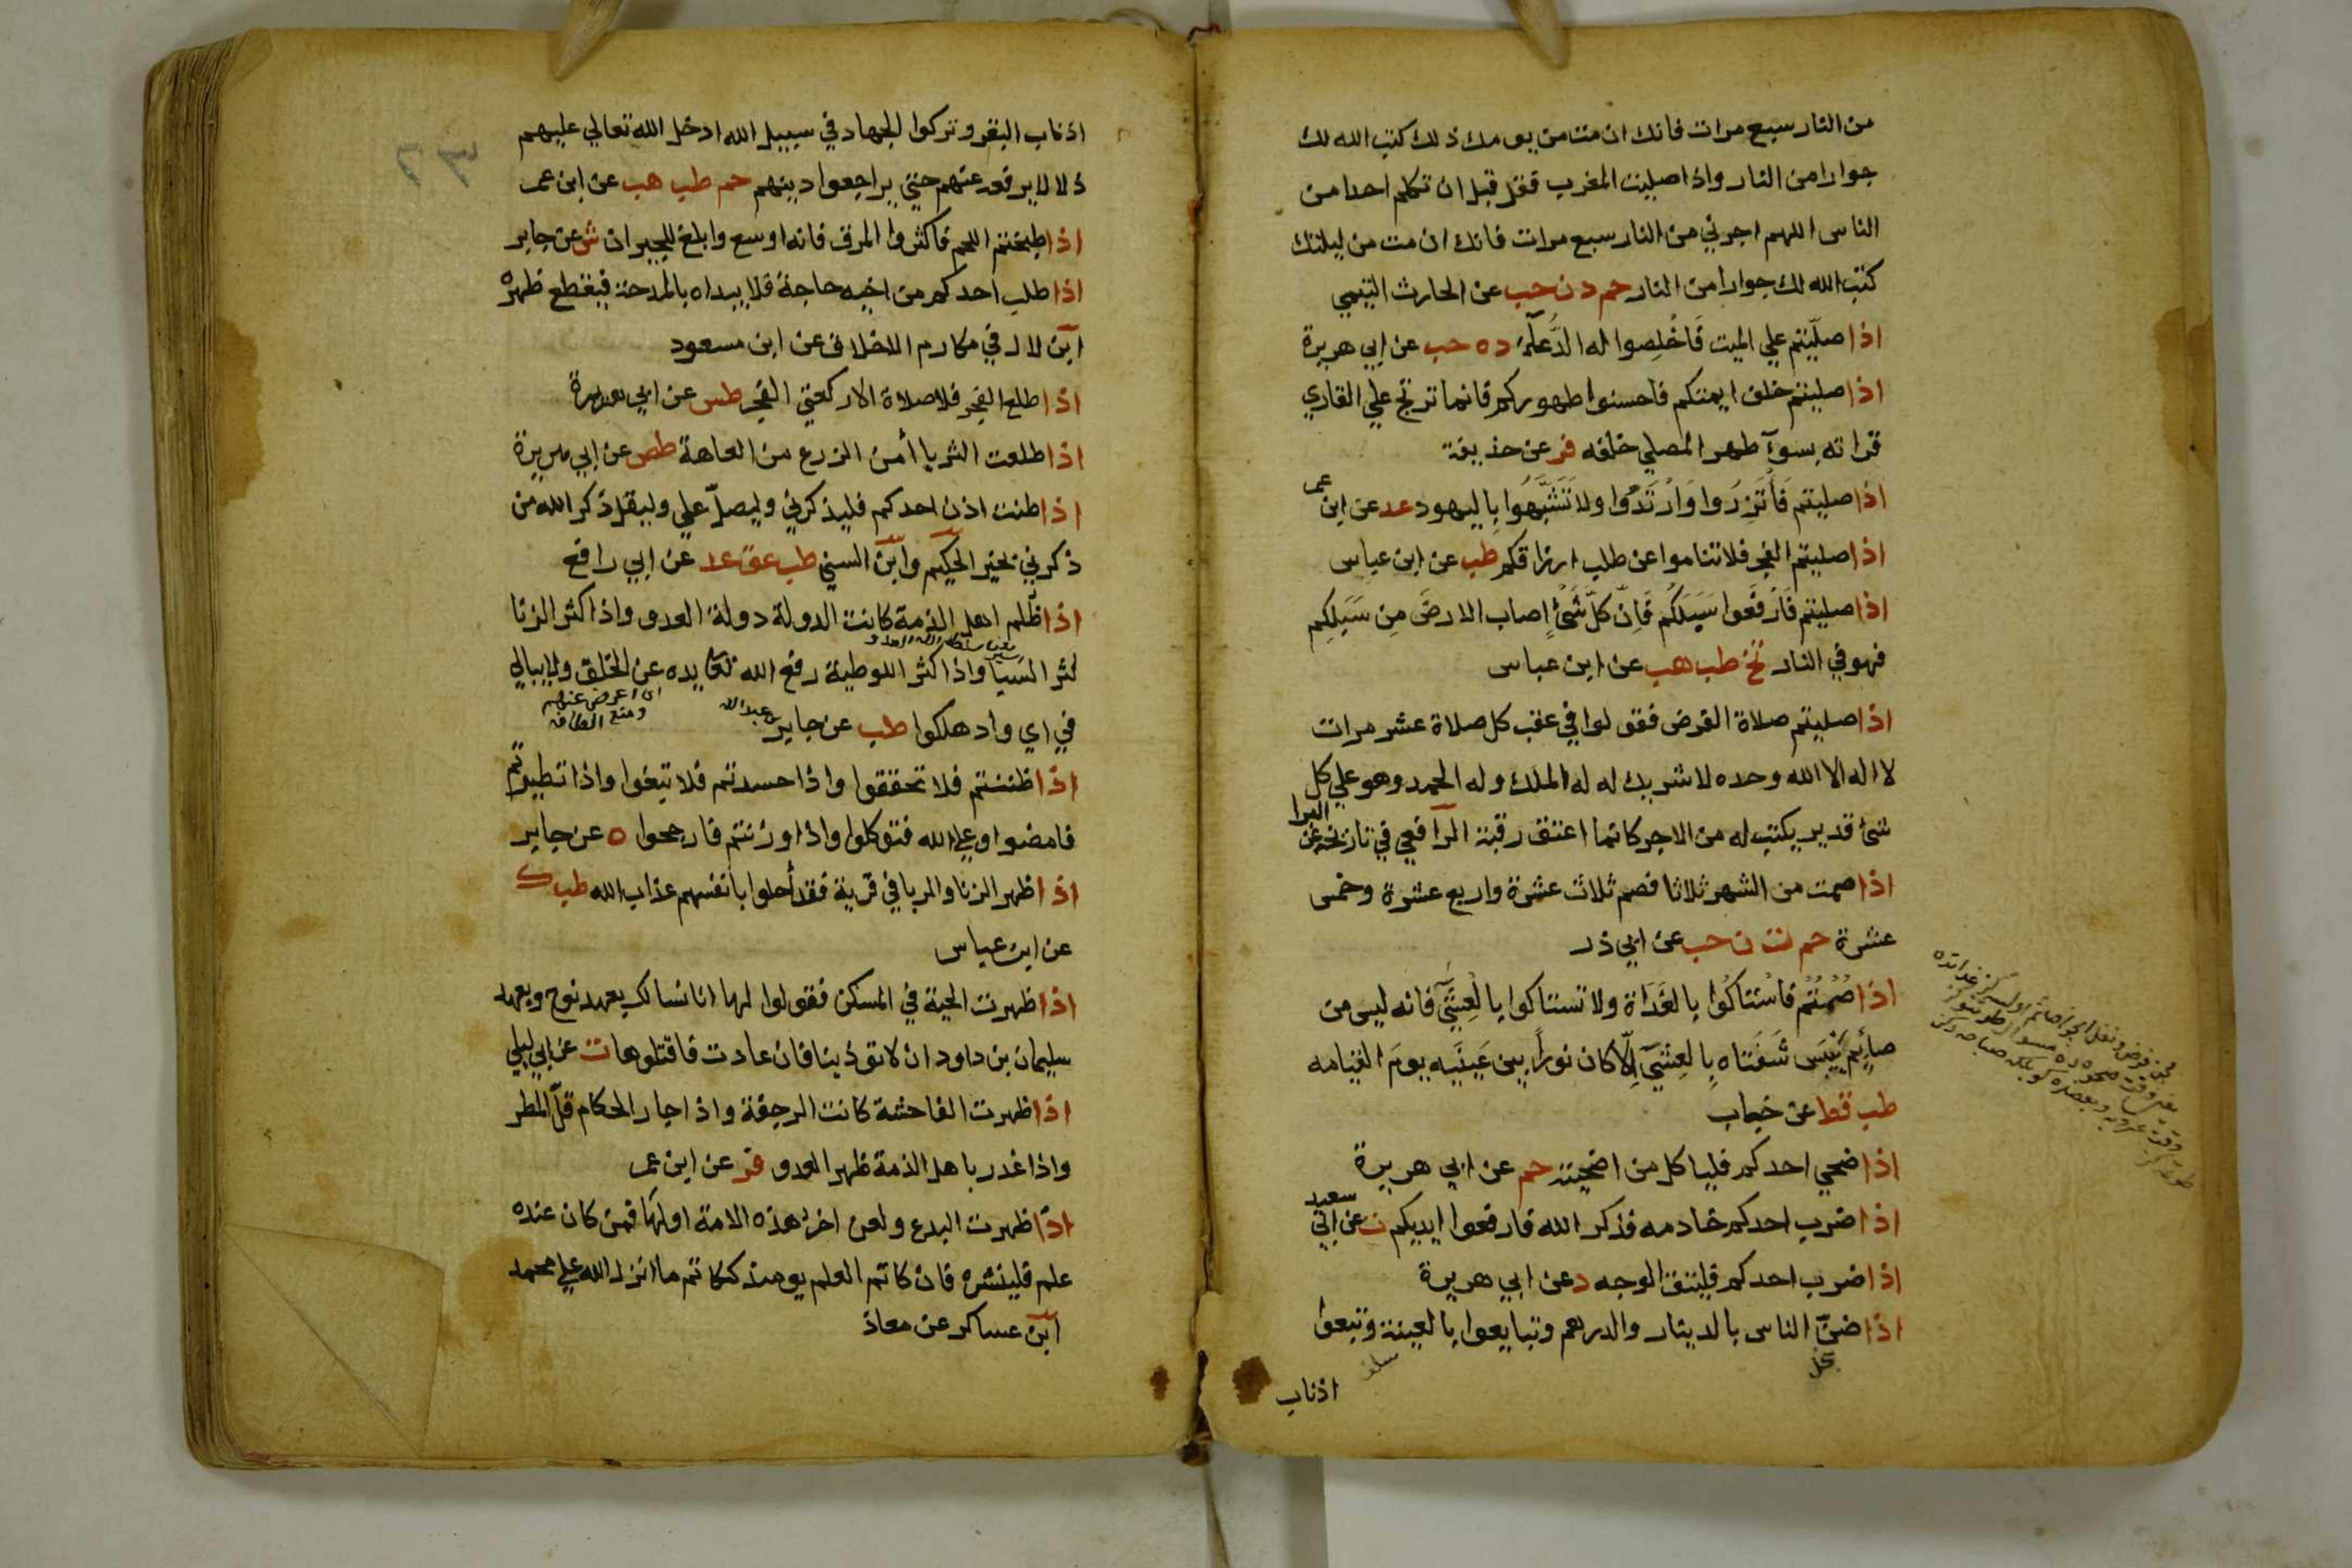 من النار سبع مرات فانك ان مت من يومك ذلك كتب الله لك
جوارا من النار واذا صليت المغرب فقل قبل ان تكلم احدا من
الناس اللهم اجرني من النار سبع مرات فانك ان مت من ليلتك
كتب الله لك جوارا من النار حم د ن حب عن الحارث التيمي
اذا صلَّيتم علي الميت فَاخْلِصوا له الدُّعآء ده حب عن ابي هريرة
اذا صليتم خلف ايمتكم فاحسنوا طهوركم فانما ترتج علي القاري
قراته بسوء طهر المصلي خلفه فر عن حذيفة
اذا صليتم فَأْتَزِرُوا وَارْتَدُوا ولا تَشَبَّهُوا بِاليهود عد عن ابن عمر
اذا صليتم الفجر فلا تناموا عن طلب ارزاقكم طب عن ابن عباس
اذا صليتم فَارْفَعوا سَبَلَكُم فَاِنَّ كلَّ شَيْءٍ اصاب الارضَ مِن سَبَلِكِم
فهو في النار تخ طب هب عن ابن عباس
اذا صليتم صلاة الفرض فقولوا في عقب كل صلاة عشر مرات
لا اله الا الله وحده لا شريك له له الملك وله الحمد وهو علي كل
شئ قدير يكتب له من الاجر كانما اعتق رقبة الرافعي في تاريخه عن البرا
اذا صمت من الشهر ثلاثا فصم ثلاث عشرة واربع عشرة وخمس
عشرة حم ت ن حب عن ابي ذر
اذا صُمْتُم فاسْتاكُوا بالغَدَاة ولا تستاكوا بالعِشَيِّ فانه ليس من
صائِم تَيْبَس شَفَتاه بِالعِشَيِّ اِلّا كان نوراً بين عَيْنَيه يومَ القيامه
طب قط عن خباب
اذا ضحي احدكم فلياكل من اضحيته حم عن ابي هريرة
اذا ضرب احدكم خادمه فذكر الله فارفعوا ايديكم ت عن ابي سعيد
اذا ضرب احدكم فليتق الوجه د عن ابي هريرة
اذا ضنّ الناس بالدينار والدرهم وتبايعوا بالعينة وتبعوا
بخل
اذناب
اذناب البقر وتركوا الجهاد في سبيل الله ادخل الله تعالي عليهم
ذلا لا يرفعه عنهم حتي يراجعوا دينهم حم طب هب عن ابن عمر
اذا طبختم اللحم فاكثروا المرق فانه اوسع وابلغ للجيران ش عن جابر
اذا طلب احدكم من اخيه حاجة فلا يبداه بالمدحة فيقطع ظهره
ابن لال في مكارم الاخلاق عن ابن مسعود
اذا طلع الفجر فلا صلاة الا ركعتي الفجر طس عن ابي هريرة
اذا طلعت الثريا أمن الزرع من العاهة طص عن ابي هريرة
اذا طنت اذن احدكم فليذكرني وليصلّ علي وليقل ذكر الله من
ذكرني بخير الحكيم وابن السني طب عق عد عن ابي رافع
اذا ظُلم اهل الذمة كانت الدولة دولة العدو واذا كثر الزنا
كثر السَبا واذا كثر اللوطية رفع الله تعا يده عن الخلق ولا يبالي
اي اعرض عنهم
ومنع الطافه
في اي واد هلكوا طب عن جابر بن عبد الله
اذا ظننتم فلا تحققوا واذا حسدتم فلا تبغوا واذا تطيرتم
فامضوا وعلي الله فتوكلوا واذا وزنتم فارجحوا ه عن جابر
اذا ظهر الزنا والربا في قرية فقد أحلوا بانفسهم عذاب الله طب ك
عن ابن عباس
اذا ظهرت الحية في المسكن فقولوا لها انا نسالك بعهد نوح وبعهد
سليمان بن داود ان لا توذينا فان عادت فاقتلوها ت عن ابي ليلي
اذا ظهرت الفاحشة كانت الرجفة واذا جار الحكام قلّ المطر
واذا غدر باهل الذمة ظهر العدو فر عن ابن عمر
اذا ظهرت البدع ولعن اخر هذه الامة اولها فمن كان عنده
علم فلينشره فان كاتم العلم يومئذ ككاتم ما انزل الله علي محمد
ابن عساكر عن معاذ